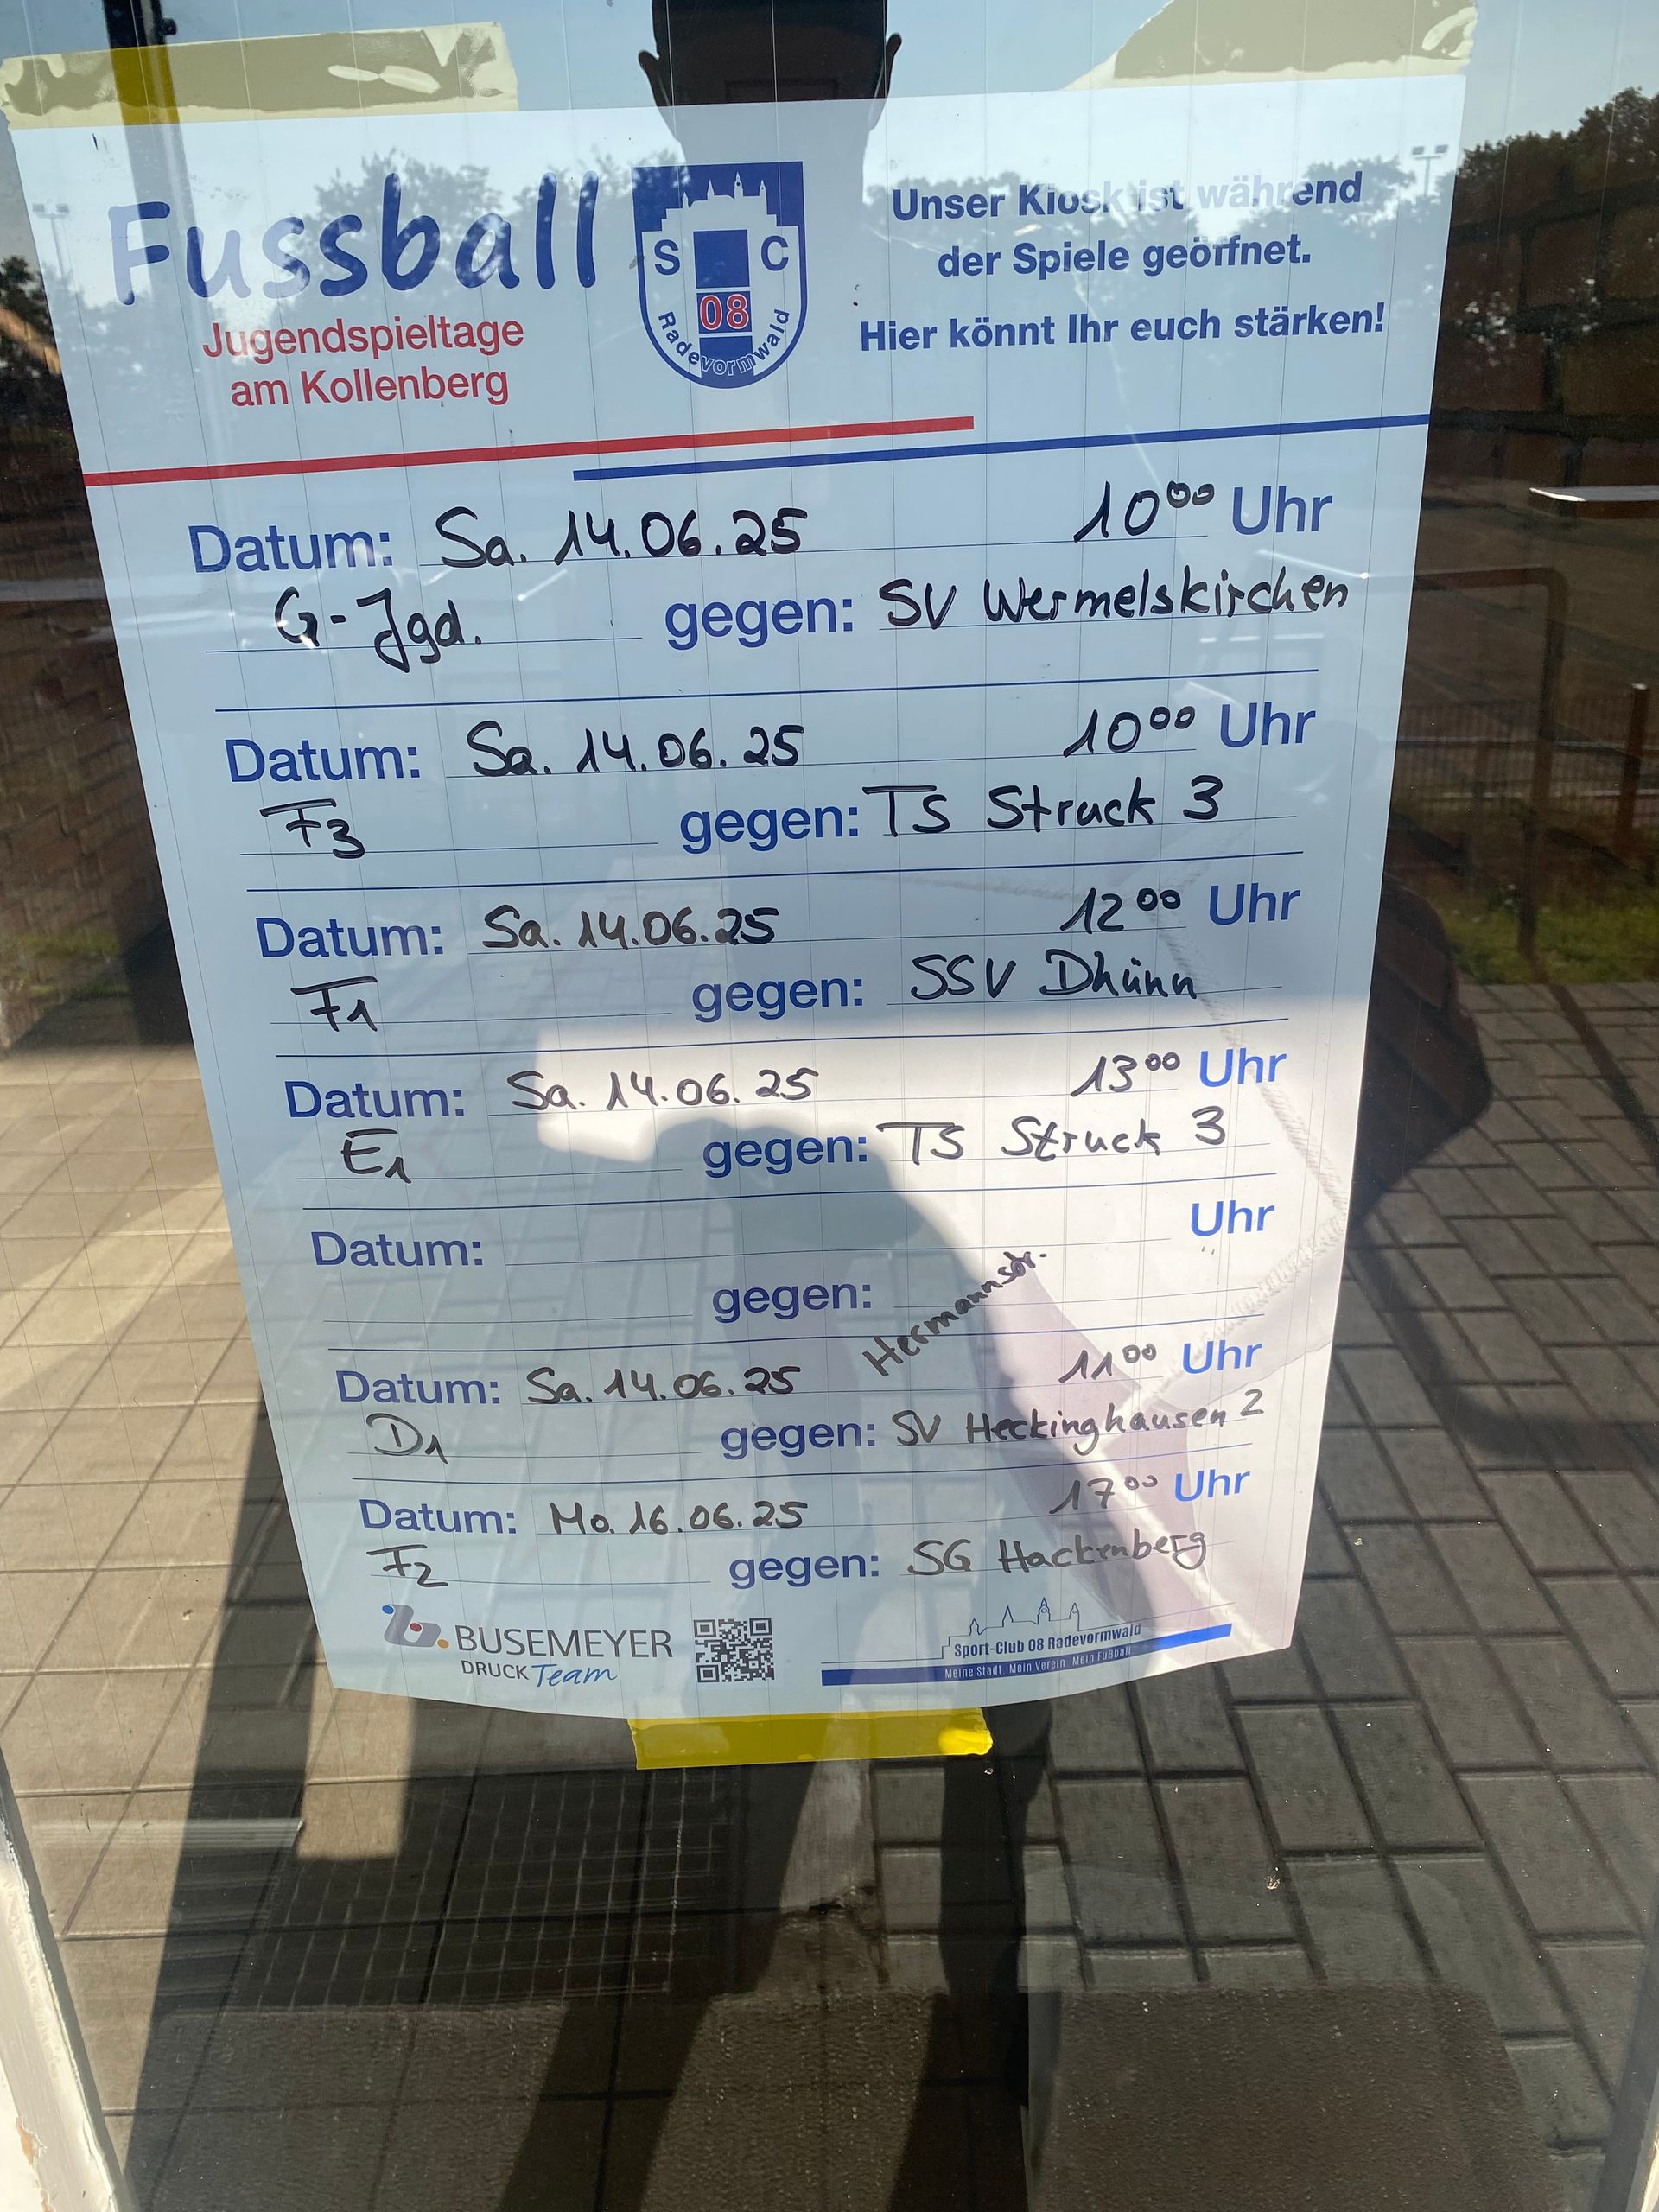 Fussball
Jugendspieltage
am Kollenberg
S C
08
Radevormwald
Unser Kiosk ist während
der Spiele geöffnet.
Hier könnt Ihr euch stärken!
Datum: Sa. 14.06.25 10⁰⁰ Uhr
G-Jgd. gegen: SV Wermelskirchen
Datum: Sa. 14.06.25 10⁰⁰ Uhr
F3 gegen: TS Struck 3
Datum: Sa. 14.06.25 12⁰⁰ Uhr
F1 gegen: SSV Dhünn
Datum: Sa. 14.06.25 13⁰⁰ Uhr
E1 gegen: TS Struck 3
Datum: Uhr
gegen:
Hermannstr.
Datum: Sa. 14.06.25 11⁰⁰ Uhr
D1 gegen: SV Heckinghausen 2
Datum: Mo. 16.06.25 17⁰⁰ Uhr
F2 gegen: SG Hackenberg
BUSEMEYER
DRUCK Team
Sport-Club 08 Radevormwald
Meine Stadt Mein Verein Mein Fußball